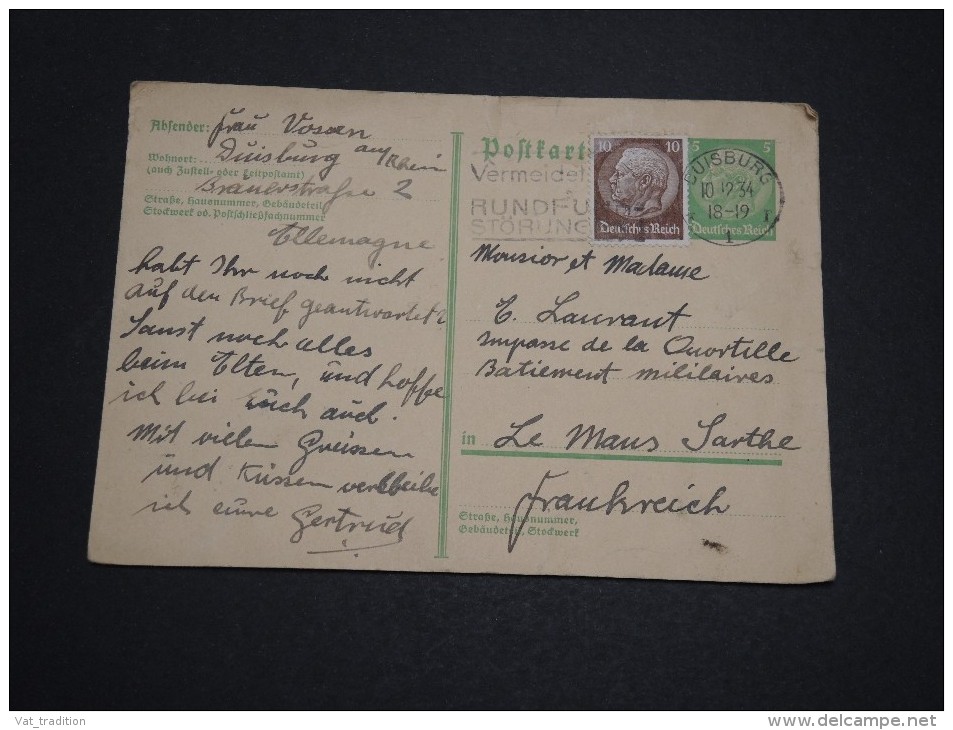 Absender: Frau Vossen
Duisburg am Rhein
Wohnort:
(auch Zustell- oder Leitpostamt)
Brauerstraße 2
Straße, Hausnummer, Gebäudeteil,
Stockwerk od. Postschließfachnummer
Ellemagne
habt Ihr noch nicht
auf den Brief geantwortet?
Sonst noch alles
beim Elten, und hoffe
ich bei Euch auch.
Mit vielen Grüssen
und Küssen verbleibe
ich eure Gertrud
Postkarte
Vermeidet
RUNDFU
STÖRUNG
10 10
Deutsches Reich
5 5
Deutsches Reich
DUISBURG
10.12.34
18-19
1
Monsior et Madame
E. Laurant
Impasse de la Quortille
Batiement militaires
in Le Mans Sarthe
Frankreich
Straße, Hausnummer,
Gebäudeteil, Stockwerk
Vat_tradition
www.delcampe.net